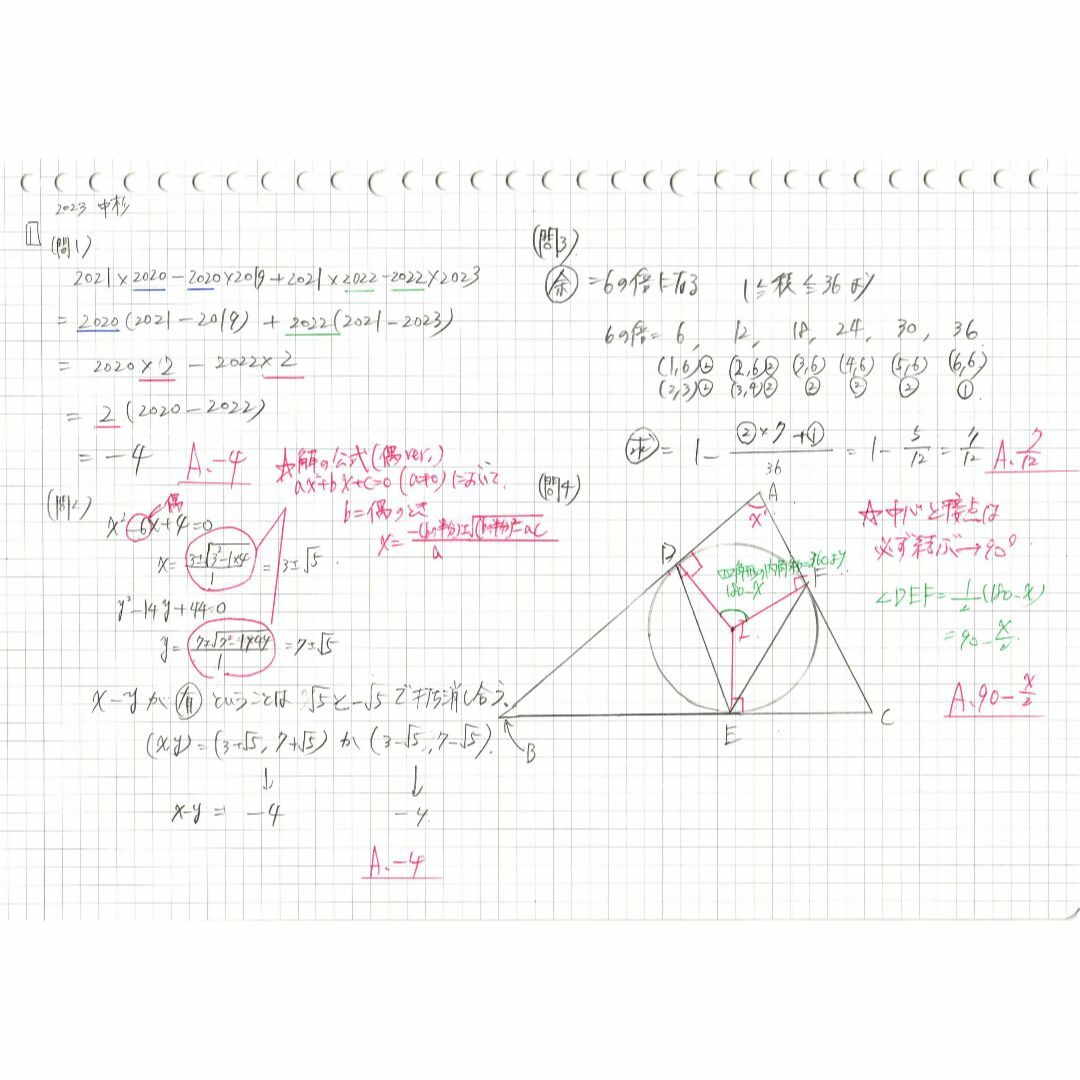 2023 中杉
1
(問1)
2021×2020−2020×2019+2021×2022−2022×2023
= 2020(2021−2019) + 2022(2021−2023)
= 2020×2 − 2022×2
= 2(2020−2022)
= −4
A、−4
(問2)
偶
x²−6x+4=0
x= 3±√3²−1×4 / 1 = 3±√5
y²−14y+44=0
y= 7±√7²−1×44 / 1 = 7±√5
☆解の公式(偶ver.)
ax²+bx+c=0 (a≠0)において
b=偶のとき
x= −(bの半分)±√(bの半分)²−ac / a
x−yが有ということは √5と−√5で打ち消し合う。
(x,y)=(3+√5, 7+√5) か (3−√5, 7−√5).
↓ ↓
x−y = −4 −4
A、−4
(問3)
余=6の倍になる 1≦積≦36より
6の倍= 6, 12, 18, 24, 30, 36
(1,6)② (2,6)② (3,6) (4,6) (5,6) (6,6)
(2,3)② (3,4)② ② ② ② ①
求= 1− ②×7+① / 36 = 1− 5/12 = 7/12
A、7/12
(問4)
A
x
D
四角形の内角和=360より
180−x
F
I
B
E
C
☆中心と接点は
必ず結ぶ→90°
∠DEF=1/2(180−x)
=90−x/2
A、90−x/2